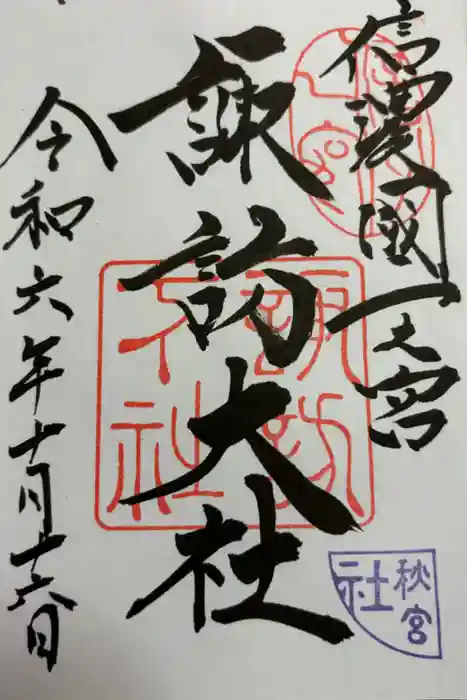 信濃國一之宮
諏訪大社
令和六年十月十六日
諏訪
下社
秋宮
社